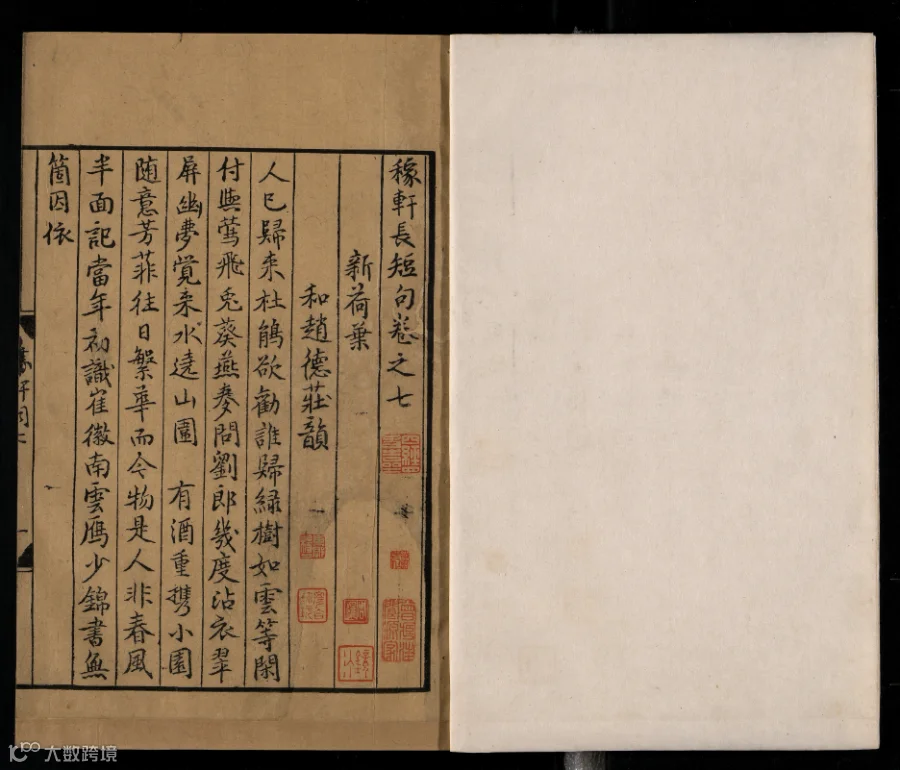 稼軒長短句卷之七
新荷葉
和趙德莊韻
人已歸来杜鵑欲勸誰歸綠樹如雲等閑
付與鶯飛兎葵燕麥問劉郎幾度沾衣翠
屏幽夢覺来水遶山圍　有酒重携小園
随意芳菲往日繁華而今物是人非春風
半面記當年初識崔徽南雲鴈少錦書無
箇因依
大数跨境